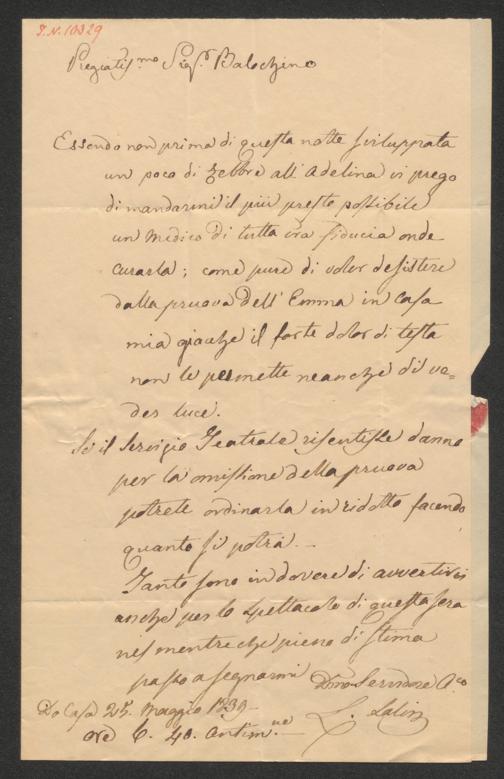 I.N. 10329
Pregiatis.mo Sig.r Balochino
Essendo non prima di questa notte sviluppata
un poco di febbre all' Adelina vi prego
di mandarmi il più presto possibile
un Medico di tutta vra fiducia onde
curarla; come pure di voler desistere
dalla pruova dell' Emma in casa
mia giacche il forte dolor di testa
non le permette neanche di ve=
der luce.
Se il servigio Teatrale risentisse danno
per la omissione della pruova
potrete ordinarla in ridotto facendo
quanto si potrà. —
Tanto sono in dovere di avvertirvi
anche per lo spettacolo di questa sera
nel mentre che pieno di stima
passo a segnarmi
Dmo Servidore A.co
Di Casa 25. Maggio 1839
ore 6. 40. antim.ne